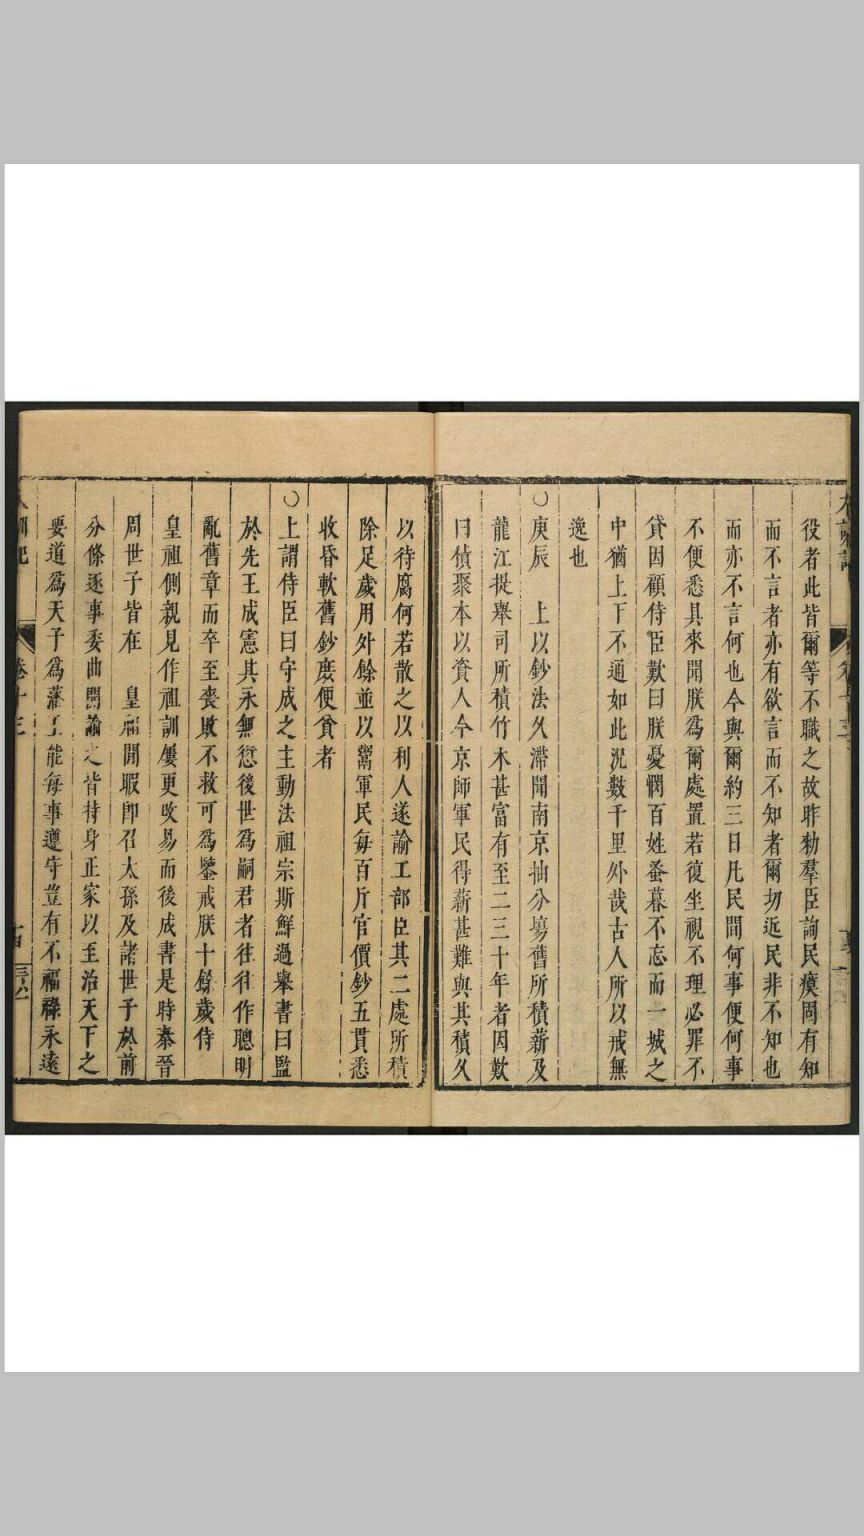 役者此皆爾等不職之故昨勑羣臣詢民瘼周有知
而不言者亦有欲言而不知者爾切近民非不知也
而亦不言何也今與爾約三日凡民間何事便何事
不便悉具來聞朕爲爾處置若復坐視不理必罪不
貸因顧侍臣歎曰朕憂憫百姓蚤暮不忘而一城之
中猶上下不通如此況數千里外哉古人所以戒無
逸也
○庚辰　上以鈔法久滯聞南京抽分塲舊所積薪及
龍江提舉司所積竹木甚富有至二三十年者因歎
曰積聚本以資人今京師軍民得薪甚難與其積久
以待腐何若散之以利人遂諭工部臣其二處所積
除足歲用外餘並以鬻軍民每百斤官價鈔五貫悉
收昏軟舊鈔庶便貧者
○上謂侍臣曰守成之主動法祖宗斯鮮過舉書曰監
於先王成憲其永無愆後世爲嗣君者往往作聰明
亂舊章而卒至喪敗不救可爲鑒戒朕十餘歲侍
皇祖側親見作祖訓屢更改易而後成書是時秦晉
周世子皆在　皇祖閒暇卽召太孫及諸世子於前
分條逐事委曲開諭之皆持身正家以至治天下之
要道爲天子爲藩王能每事遵守豈有不福祿永遠
卷十三